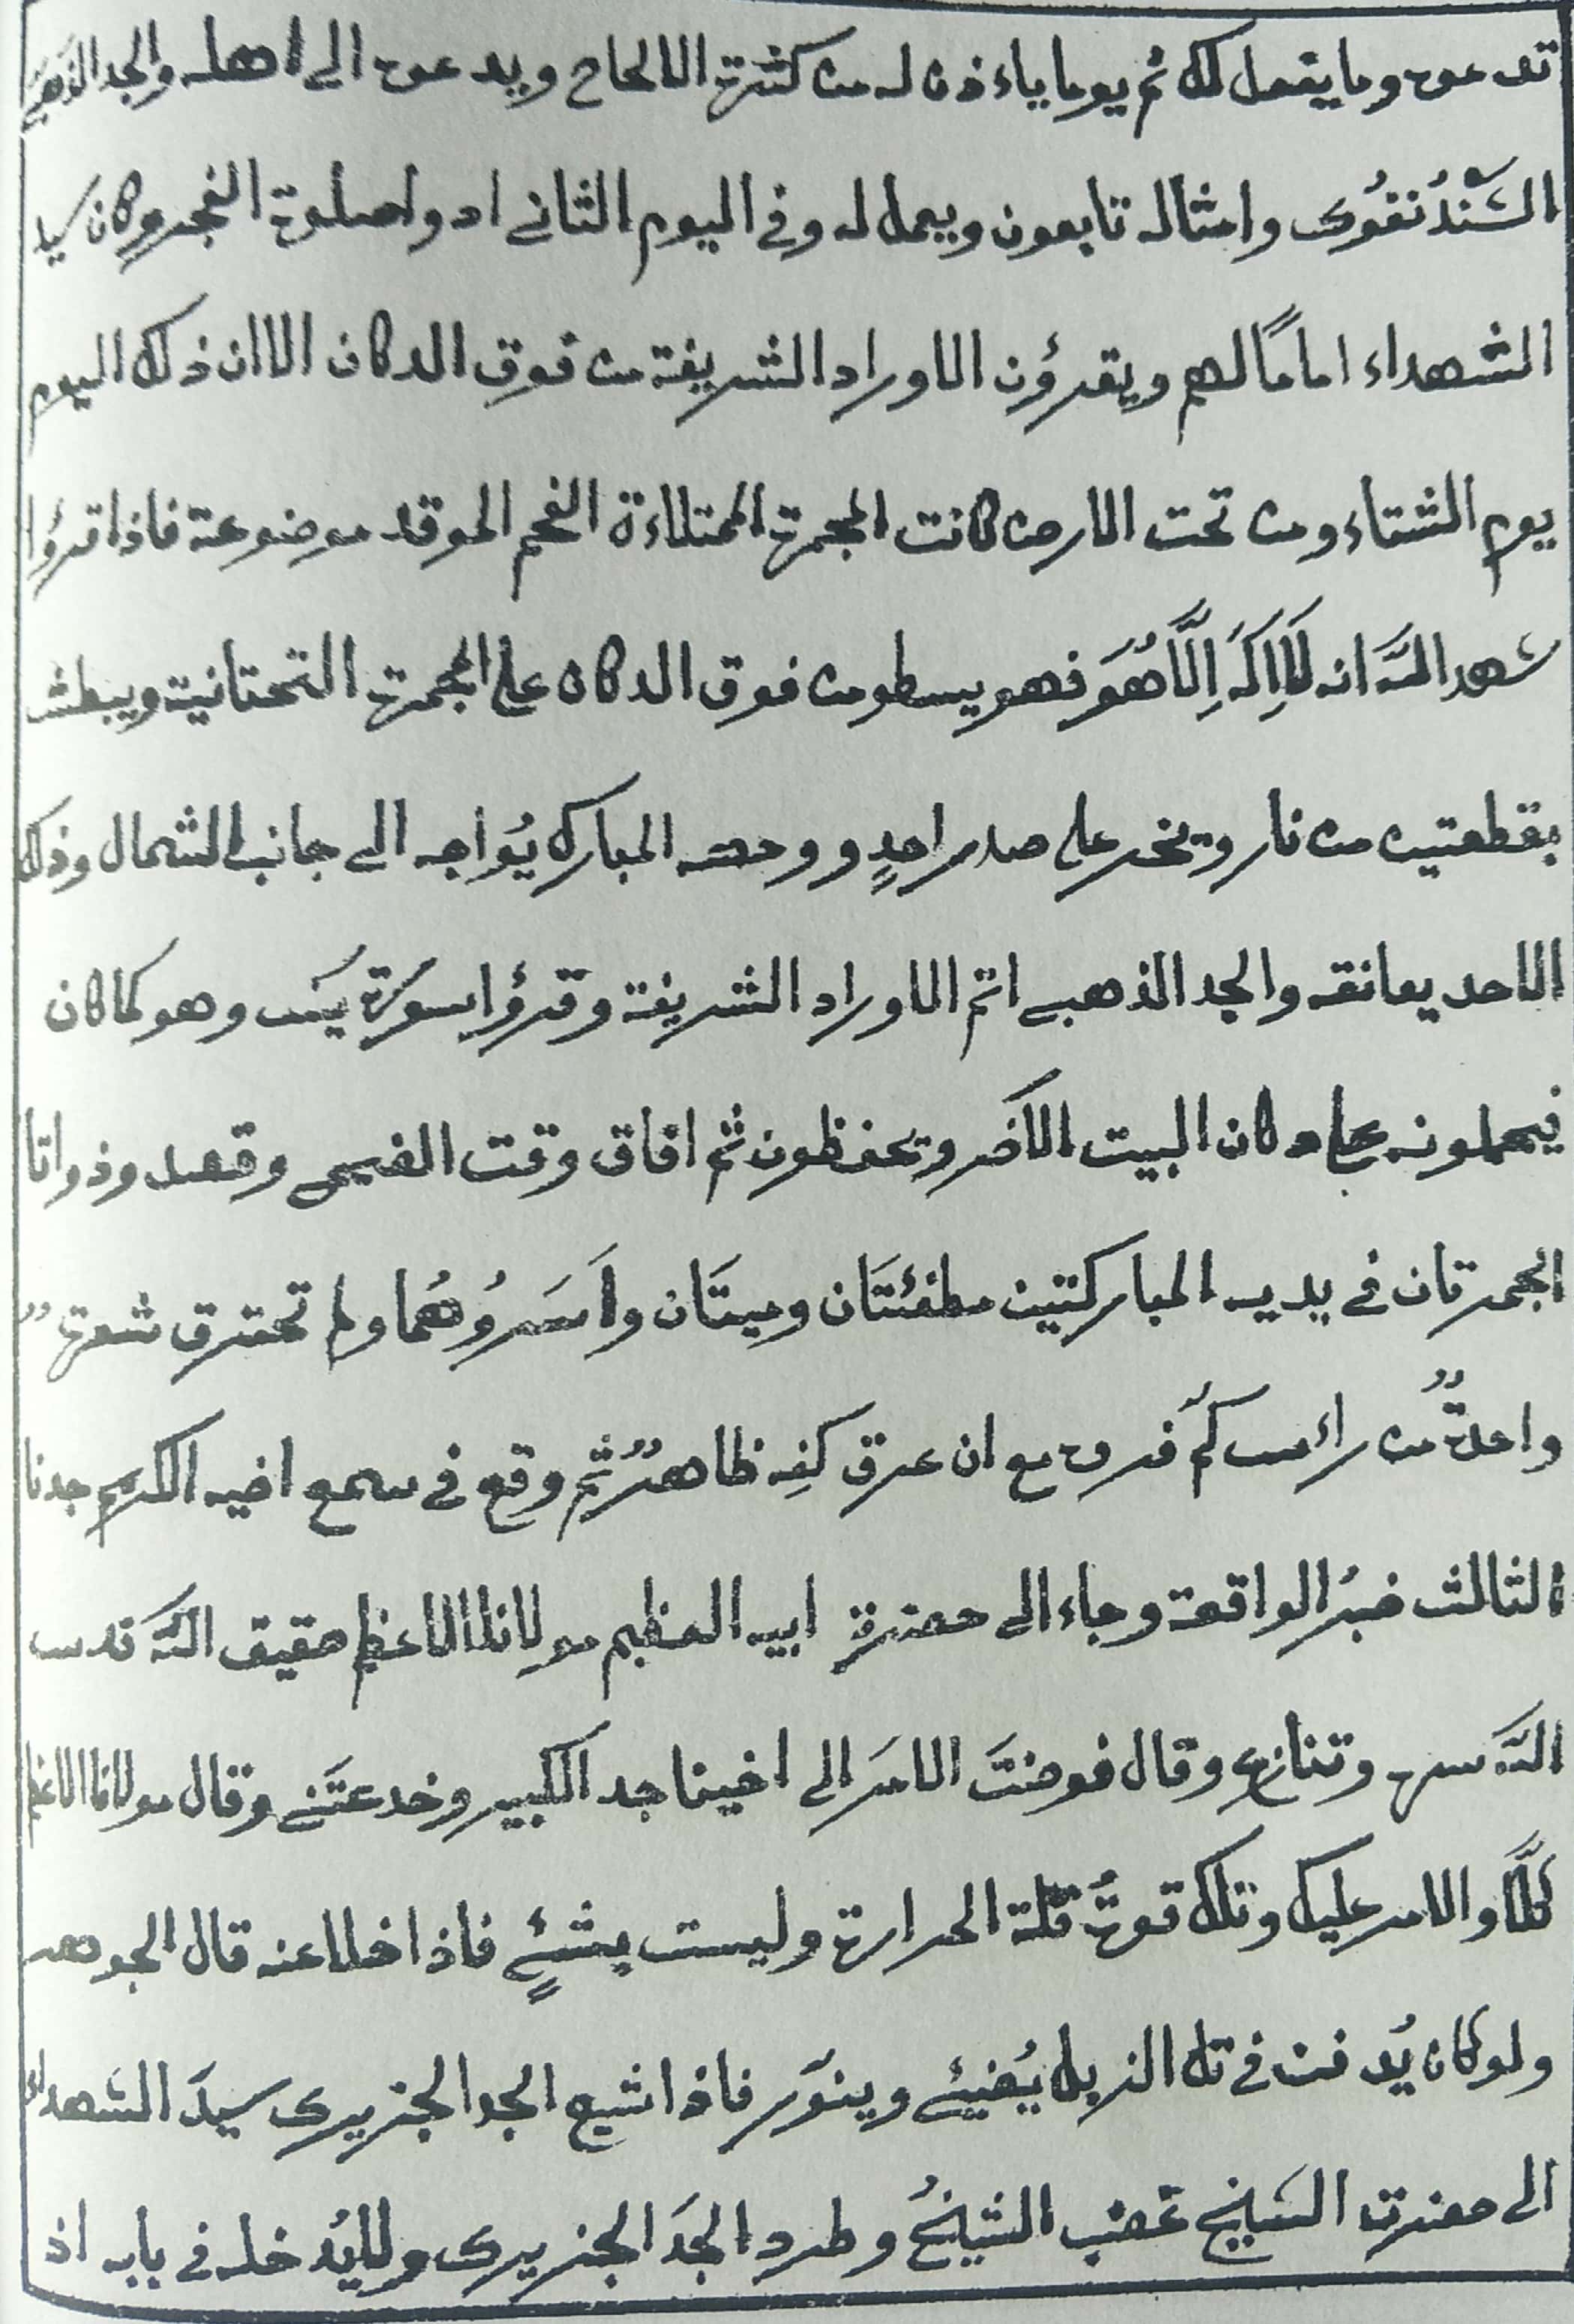 تدعون وما يقبل لك ثم يوما ياءذن له من كثرة الالحاح ويدعون الى اهله والجد الذهبي
السَّنْدُنفُوى وامثاله تابعون ويعمل له وفي اليوم الثاني ادوا صلوة الفجر وكان سيد
الشهداء اماماً لهم ويقرؤن الاوراد الشريفة من فوق الدكان الا ان ذلك اليوم
يوم الشتاء ومن تحت الارض كانت المجمرة الممتلاءة الفحم الموقد موضوعة فاذا قرؤا
شهد الله انه لَا اِلَهَ اِلَّا هُوَ فهو يسطو من فوق الدكان على المجمرة التحتانية ويبطش
بقطعتين من نار ويخر على صدر احدٍ ووجهه المبارك يُواجه الى جانب الشمال وذلك
الاحد يعانقه والجد الذهبي اتم الاوراد الشريفة وقرؤا سورة يٰس وهو كما كان
فيحملونه على دكان البيت الآخر ويحفظون ثم افاق وقت الضحى وقعد وذواتا
الجمرتان في يديه المباركتين مطفئتَان وميتَان واَسَروُهُما ولم تحترق شعرةٌ
واحدةٌ من رائس كُم فروه مع ان عرق كفِه ظاهرٌ ثم وقع في سمع اخيه الكريم جدنا
الثالث خبرُ الواقعة وجاء الى حضرة ابيه العظيم مولانا الاعظم حقيق الله قدس
الله سره وتنازع وقال فوضتَ الامرَ الى اخينا جد الكبير وخدعتَني وقال مولانا الاعظم
كلَّا والامر عليك وتلك قوةُ قلة الحرارة وليست بشئٍ فاذا خلا عنه قال الجوهر
ولو كان يُدفن في تل الزبل يُضيئ وينوّر فاذا شيع الجد الجزيرى سيدَ الشهداء
الى حضرت الشيخ غضب الشيخُ وطرد الجدَ الجزيرى ولايُدخله في بابه اذ